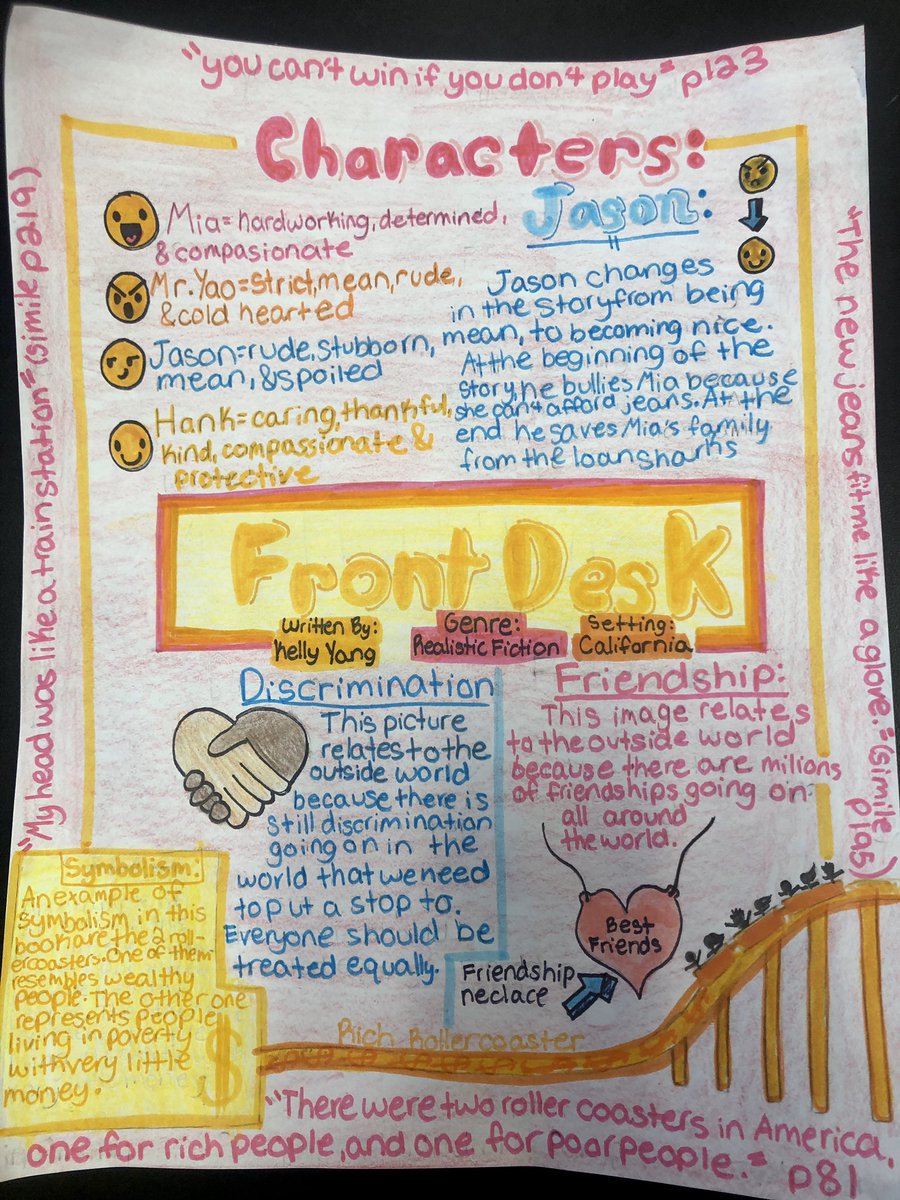 "you can't win if you don't play" p123
Characters:
Mia=hardworking, determined,
& compasionate
Mr. Yao=strict, mean, rude,
& cold hearted
Jason=rude, stubborn,
mean, & spoiled
Hank=caring, thankful,
kind, compassionate &
protective
Jason:
Jason changes
in the story from being
mean, to becoming nice.
At the beginning of the
story, he bullies Mia because
she can't afford jeans. At the
end he saves Mia's family
from the loan sharks
"My head was like a train station" (simile p219)
"The new jeans fit me like a glove." (simile,
p195)
Front Desk
Written By:
Kelly Yang
Genre:
Realistic Fiction
Setting:
California
Discrimination
This picture
relates to the
outside world
because there is
still discrimination
going on in the
world that we need
to put a stop to.
Everyone should be
treated equally.
Friendship:
This image relates
to the outside world
because there are milions
of friendships going on
all around
the world.
Best
Friends
Friendship
neclace
Symbolism:
An example of
symbolism in this
book are the 2 roll-
ercoasters. One of them
resembles wealthy
people. The other one
represents people
living in poverty
with very little
money.
$
Rich Rollercoaster
"There were two roller coasters in America,
one for rich people, and one for poor people." p81